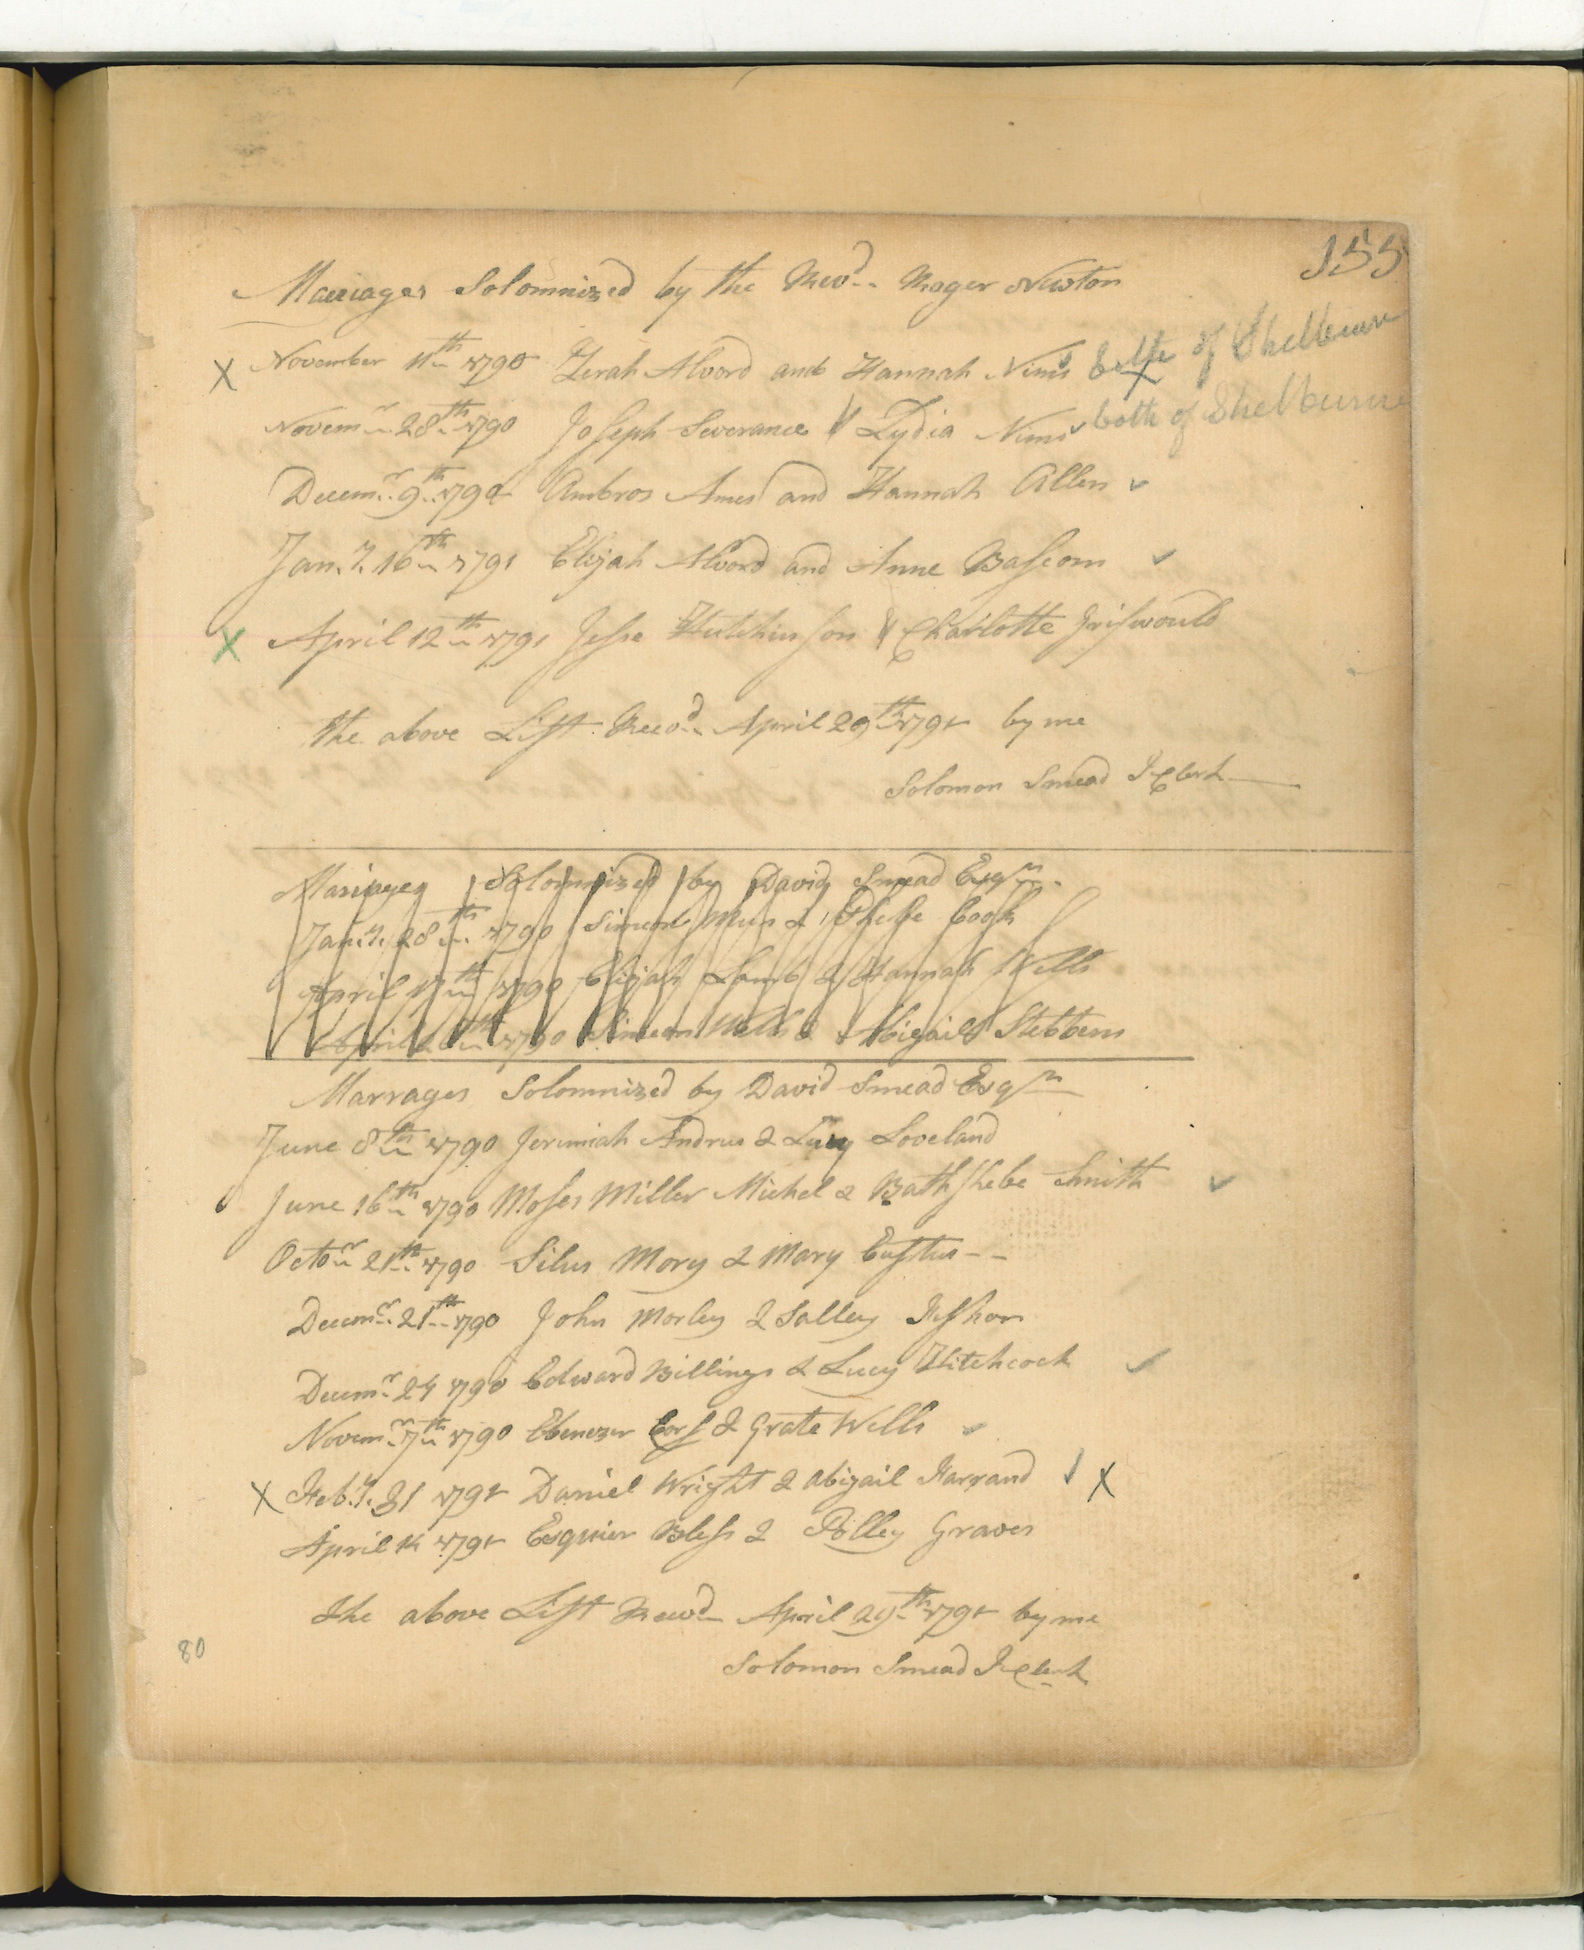 155
Marriages Solomnized by the Revd. Roger Newton
X November 11th 1790 Zerah Alvord and Hannah Nims both of Shelburn
Novemr. 28th 1790 Joseph Severance & Lydia Nims both of Shelburne
Decemr. 9th 1790 Ambros Ames and Hannah Allen
Jany. 16th 1791 Elijah Alvord and Anne Bascom
X April 12th 1791 Jesse Hutchinson & Charlotte Griswould
the above List Recod. April 29th 1791 by me
Solomon Smead T Clerk
Mariages Solomnized by David Smead Esqr.
Jany. 28th 1790 Simeon Mun & Phebe Cook
April th 1790 Elijah Lamb & Hannah Wells
April th 1790 Simeon Wells & Abigail Stebbens
Marrages Solomnized by David Smead Esqr
June 8th 1790 Jeremiah Andrus & Lucy Loveland
June 16th 1790 Moses Miller Michel & Bathshebe Smith
Octor 21th 1790 Silus Mory & Mary
Decemr. 21th 1790 John Morley & Salley
Decemr. 24 1790 Edward Billings & Lucy Hitchcock
Novemr. 7th 1790 Ebenezer Cors & Grate Wells
X Feby. 1791 Daniel Wright & Abigail Farrand X
April 14 1791 Esquier Bless & Polley Graves
the above List Recod April 29th 1791 by me
Solomon Smead T Clerk
80